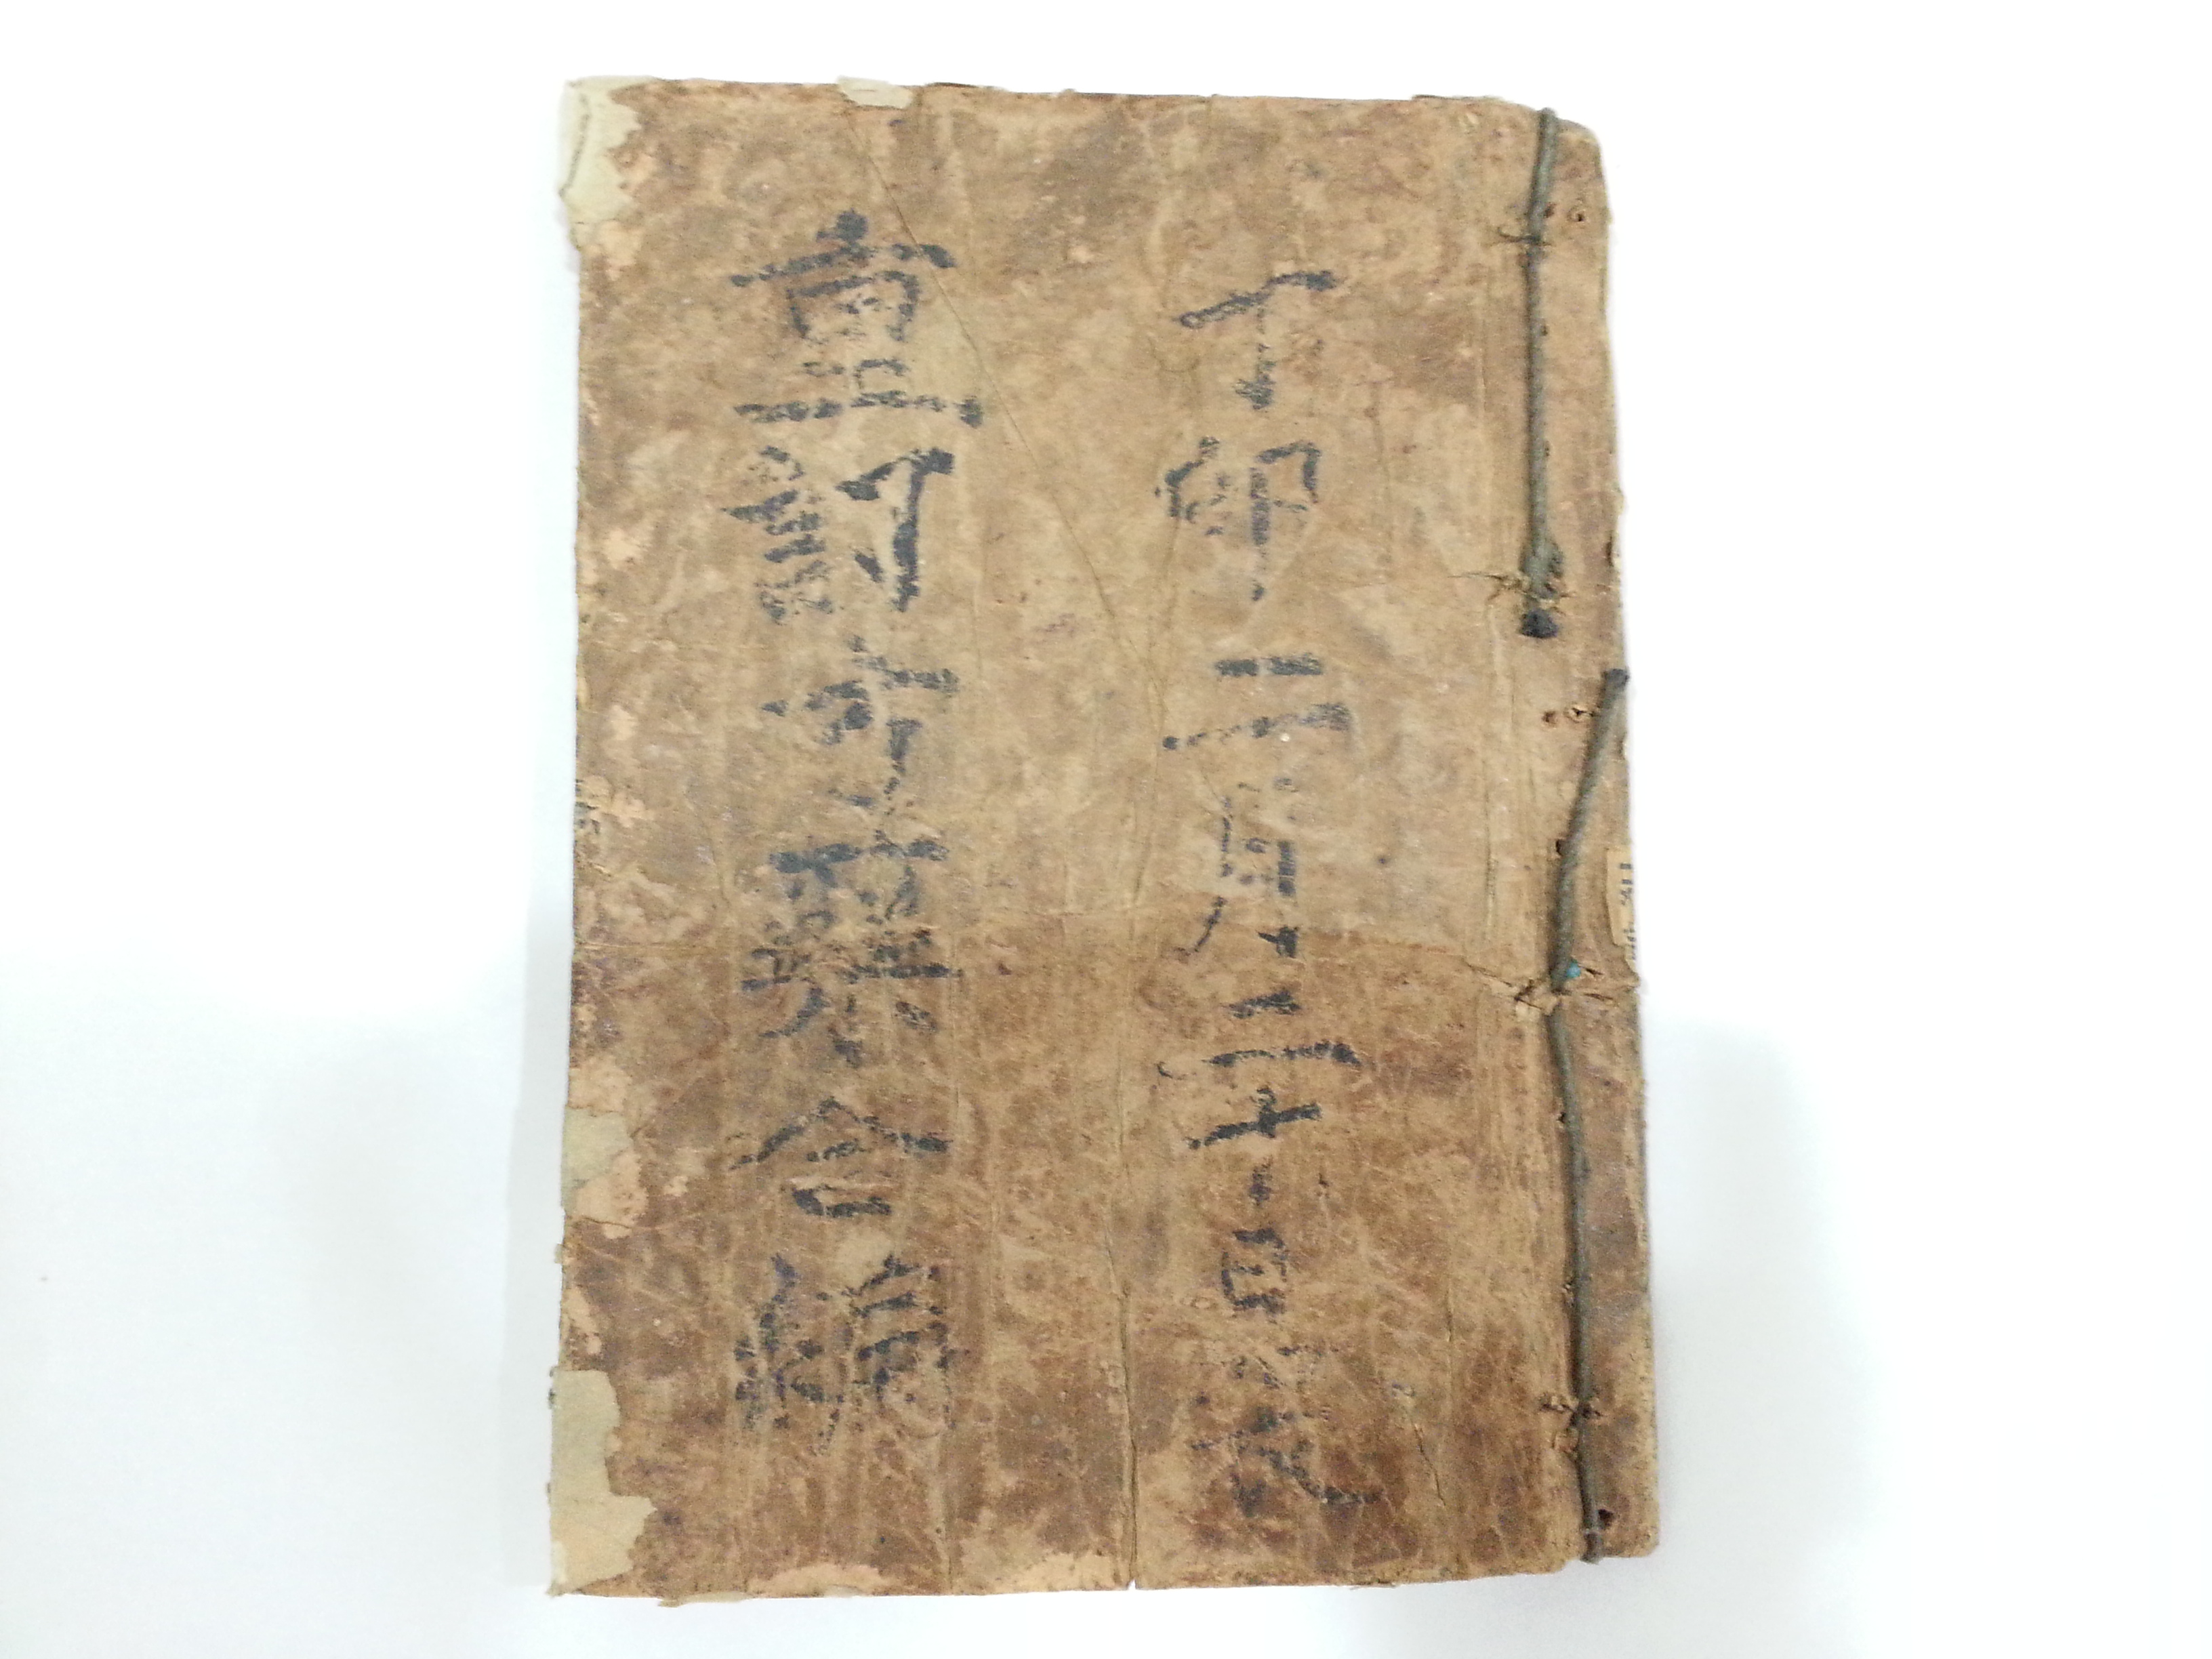 丁卯二月二十日
重訂方藥合編